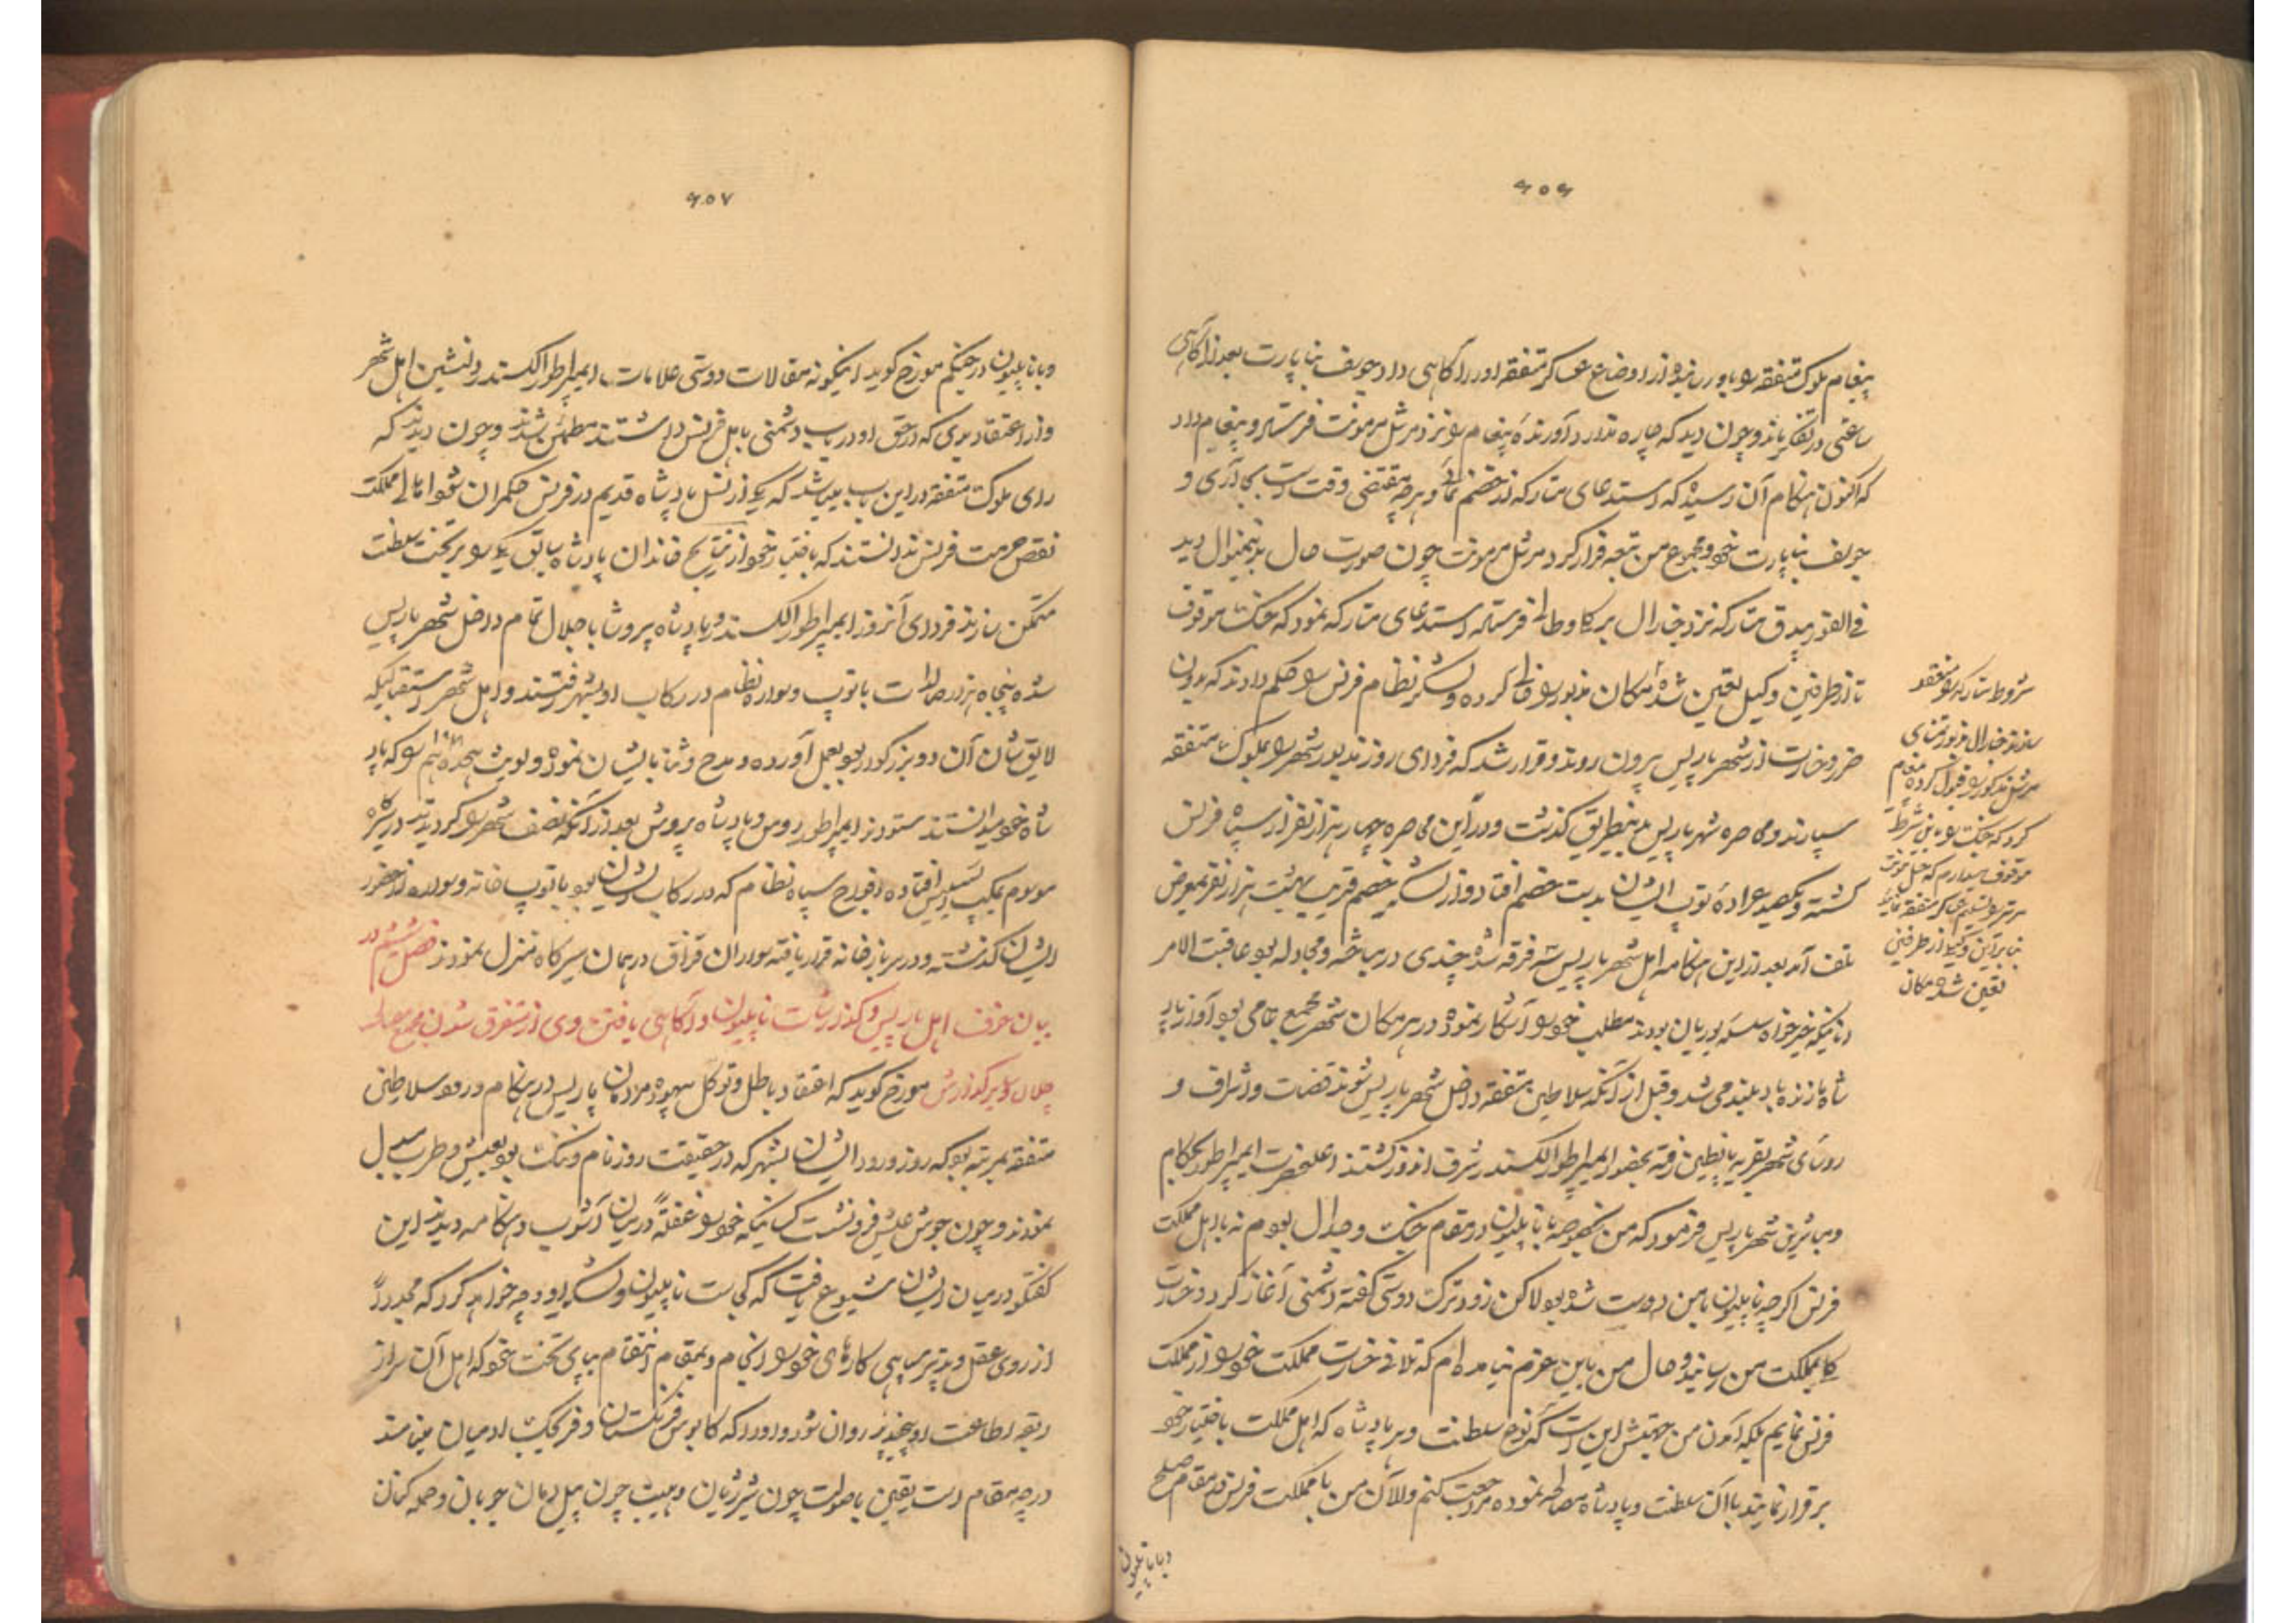 ۶۰۶
پیغام ملوک متفقه را باو رسانیده از اوضاع عساکر متفقه او را آگاهی داد جوزیف بناپارت بعد از آگاهی
ساعتی در تفکر ماند و چون دید که چاره ندارد آورندهٔ پیغام را نزد مرشل مرمونت فرستاد و پیغام داد
که اکنون هنگام آن رسیده که استدعای متارکه از خصم نماید و هرچه مقتضی وقت است بجا آری و
جوزیف بناپارت خود و مجموع من تبعه فرار کرد مرشل مرمونت چون صورت حال بدینمنوال دید
فی الفور بیدق متارکه نزد جنرال فرستاده استدعای متارکه نمود که جنگ موقوف
تا از طرفین وکیل تعیین شده مکان مزبور را خالی کرده و لشکر نظام فرنس را حکم دادند که بدون
ضرر و خسارت از شهر پاریس بیرون روند و قرار شد که فردای روز مزبور شهر را بملوک متفقه
سپارند و محاصره شهر پاریس بدینطریق گذشت و در این محاصره چهار هزار نفر از سپاه فرنس
کشته و یکصد عراده توپ ایشان بدست خصم افتاد و از لشکر خصم قریب بهشت هزار نفر بمعرض
تلف آمد بعد از این هنگامه اهل شهر پاریس سه فرقه شده چندی در مباحثه و مجادله بود عاقبت الامر
آنانیکه خیرخواه سلسله بوربان بودند مطلب خود را آشکار نموده در هر مکان شهر مجمع تمامی بود آواز باد
شاه ما زنده باد بلند می شد و قبل از آنکه سلاطین متفقه داخل شهر پاریس شوند قضات و اشراف و
رؤسای شهر بقریه پانطین رفته بحضور ایمپراطور الکسندر شرف اندوز گشتند اعلیحضرت ایمپراطور بحکام
و مباشرین شهر پاریس فرمود که من بخصوصه با ناپلیون در مقام جنگ و جدال بودم نه با اهل مملکت
فرنس اگرچه ناپلیون با من دوست شده بود لاکن زود ترک دوستی گفته دشمنی آغاز کرد و خسارت
کلی بمملکت من رسانید و حال من باین عزم نیامده ام که تلافی خسارت مملکت خود را از مملکت
فرنس نمایم بلکه آمدن من جهتش این است که نوع سلطنت و هر پادشاه که اهل مملکت باختیار خود
برقرار نمایند با آن سلطنت و پادشاه مصالحه نموده مراجعت کنم و الآن من با مملکت فرنس در مقام صلح
و با ناپلیون
شروط متارکه را منعقد
سازند جنرال مزبور تمنای
مرشل مذکور را قبول کرده پیغام
کرد که جنگ را باین شرط
موقوف میدارم که
مرتر را تسلیم عساکر متفقه نماید
بنابراین وکیل از طرفین
تعیین شده مکان
۶۰۷
و با ناپلیون در جنگم مورخ گوید اینگونه مقالات دوستی علامات ایمپراطور الکسندر دلنشین اهل شهر
و از اعتقاد بدی که در حق او در باب دشمنی با اهل فرنس داشتند مطمئن شدند و چون دیدند که
رای ملوک متفقه در این باب میباشد که یکی از نسل پادشاه قدیم در فرنس حکمران شود اهالی مملکت
نقص حرمت فرنس ندانستند که باختیار خود از نتایج خاندان پادشاه سابق یکی را بر تخت سلطنت
متمکن سازند فردای آنروز ایمپراطور الکسندر و پادشاه پروشا با جلال تمام داخل شهر پاریس
شده پنجاه هزار صالدات با توپ و سواره نظام در رکاب او بشهر رفتند و اهل شهر استقبالیکه
لایق شان آن دو بزرگوار بود بعمل آورده و مدح و ثنا بایشان نموده و لویٔ هجدهم را که پاد
شاه خود میدانستند ستودند ایمپراطور روس و پادشاه پروش بعد از آنکه نصف شهر را گردیدند در سیرگاه
موسوم به افتاده افواج سپاه نظام که در رکاب ایشان بود با توپ خانه و سواره از حضور
ایشان گذشته و در سربازخانه قرار یافته سواران قزاق در همان سیرگاه منزل نمودند فصل ششم در
بیان خوف اهل پاریس و گذارشات ناپلیون و آگاهی یافتن وی از متفرق شدن مجمع
جلال و سایر گذارش مورخ گوید که اعتقاد باطل و توکل بیهوده مردمان پاریس در هنگام ورود سلاطین
متفقه بمرتبه بود که روز ورود ایشان بشهر که در حقیقت روز نام و ننگ بود بعیش و طرب مبدل
نمودند و چون جوش عیش فرو نشست کسانیکه خود را غفلةً در میان آشوب و هنگامه دیدند این
گفتگو در میان ایشان شیوع یافت که کجاست ناپلیون و لشکر او و چه خواهد کرد که مجدداً
از روی عقل و تدبیر سپاهی کارهای خود را انجام و بمقام انتقام بپای تخت خود که اهل آن سر از
ربقه اطاعت او پیچیدند روان شود و او را که کابوس فرنگستان و فرنگیک ادمیان مینامند
در چه مقام است یقین با صولت چون شیر ژیان و هیبت چون پیل دمان جویان و حمله کنان